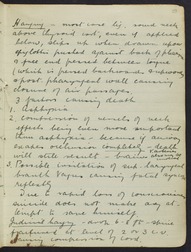 Hanging – most case lig. round neck
above thyroid cart, even if applied
below, slips up when drawn upon
Epiglottis pushed against back of pharynx
& free end pressed between tongue
(which is pressed backwards & upwards)
& post pharyngeal wall causing
closure of air passages.
3 factors causing death
1. asphyxia
2. compression of vessels of neck
effects being even more important
than asphyxia – because if airway
escapes occlusion completely death
will still result –
3. Possible irritation of sup laryngeal
branch vagus causing fatal syncope
reflexly
Due to rapid loss of consciousness
suicide does not make any at-
tempt to save himself
Judicial hanging – 6 ft –
fractured at level of 2 or 3 C.V.
causing compression of cord.